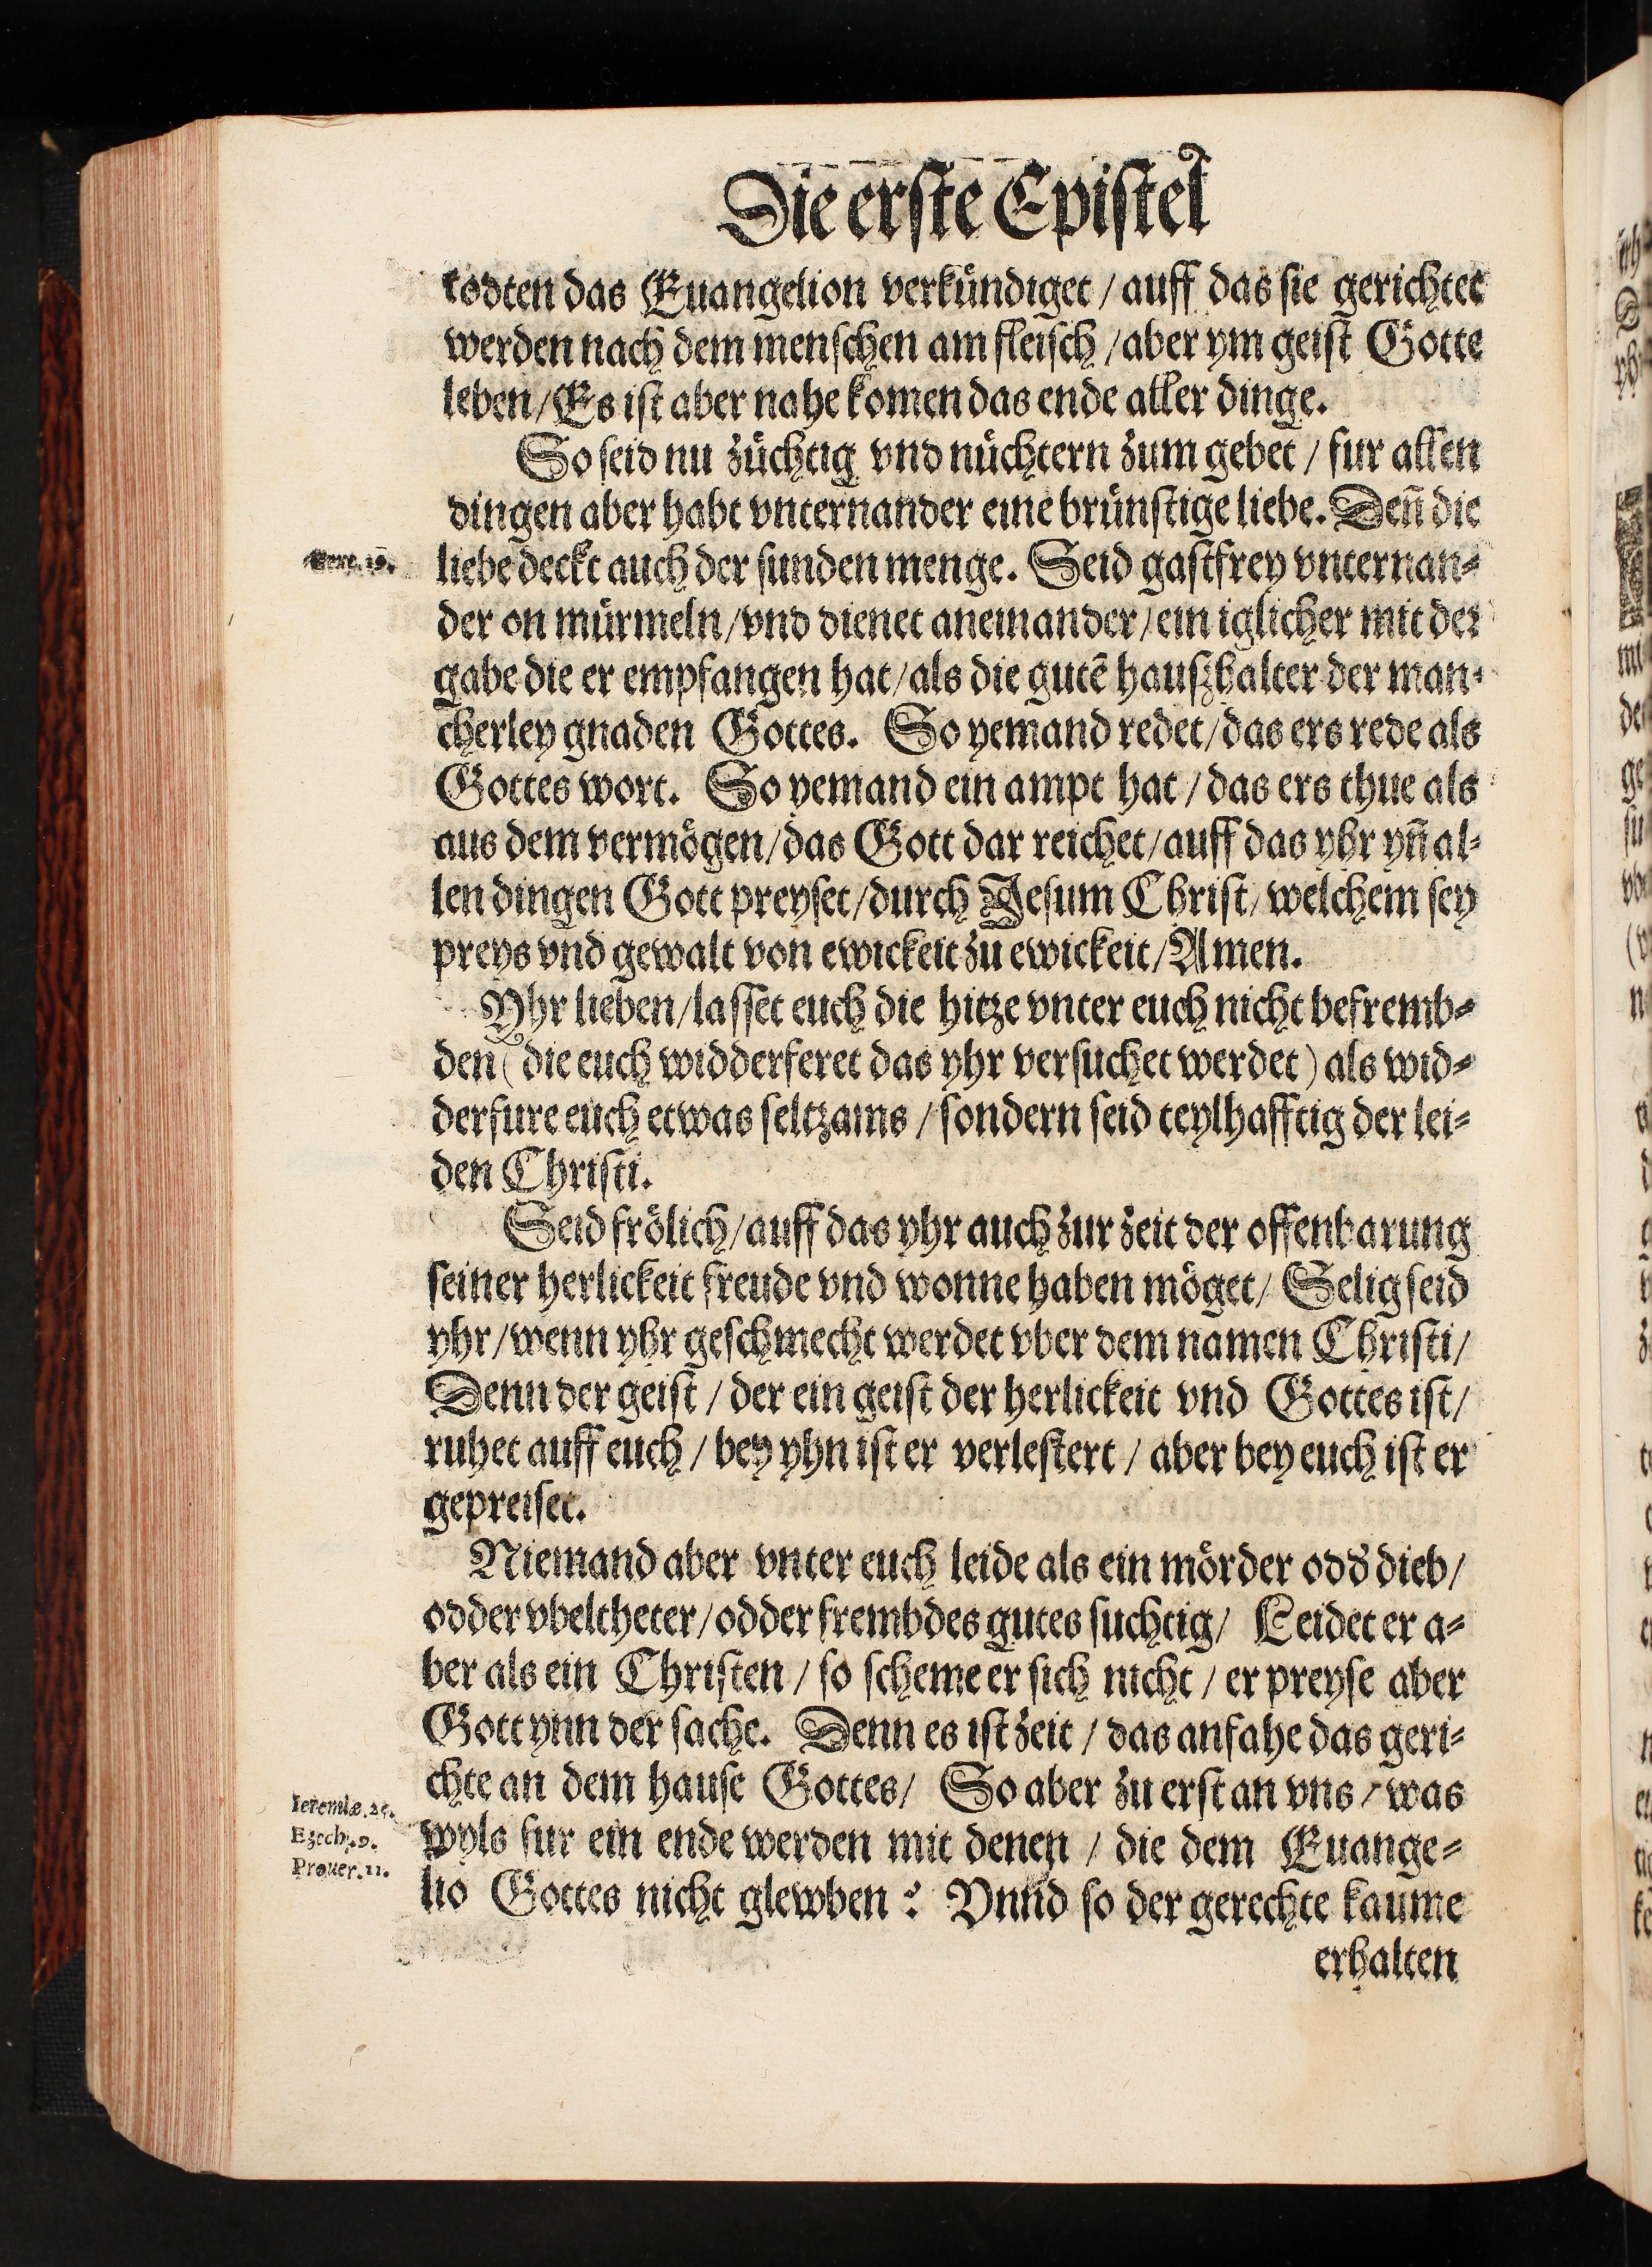 Die erſte Epiſtel
todten das Euangelion verkuͤndiget / auff das ſie gerichtet
werden nach dem menſchen am fleiſch / aber ym geiſt Gotte
leben / Es iſt aber nahe komen das ende aller dinge.
So ſeid nu zuͤchtig vnd nuͤchtern zum gebet / fur allen
dingen aber habt vnternander eine bruͤnſtige liebe. Deñ die
liebe deckt auch der ſunden menge. Seid gaſtfrey vnternan⸗
der on muͤrmeln / vnd dienet aneinander / ein iglicher mit der
gabe die er empfangen hat / als die gutẽ hauſzhalter der man⸗
cherley gnaden Gottes. So yemand redet / das ers rede als
Gottes wort. So yemand ein ampt hat / das ers thue als
aus dem vermoͤgen / das Gott dar reichet / auff das yhr yñ al⸗
len dingen Gott preyſet / durch Jeſum Chriſt / welchem ſey
preys vnd gewalt von ewickeit zu ewickeit / Amen.
Yhr lieben / laſſet euch die hitze vnter euch nicht befremb⸗
den ( die euch widderferet das yhr verſuchet werdet ) als wid⸗
derfure euch etwas ſeltzams / ſondern ſeid teylhafftig der lei⸗
den Chriſti.
Seid froͤlich / auff das yhr auch zur zeit der offenbarung
ſeiner herlickeit freude vnd wonne haben moͤget / Selig ſeid
yhr / wenn yhr geſchmecht werdet vber dem namen Chriſti /
Denn der geiſt / der ein geiſt der herlickeit vnd Gottes iſt /
ruhet auff euch / bey yhn iſt er verleſtert / aber bey euch iſt er
gepreiſet.
Niemand aber vnter euch leide als ein moͤrder odď dieb /
odder vbeltheter / odder frembdes gutes ſuchtig / Leidet er a⸗
ber als ein Chriſten / ſo ſcheme er ſich nicht / er preyſe aber
Gott ynn der ſache. Denn es iſt zeit / das anfahe das geri⸗
chte an dem hauſe Gottes / So aber zu erſt an vns / was
Ieremiæ. 25.
wyls fur ein ende werden mit denen / die dem Euange⸗
Ezech. 9.
Prouer. 11.
lio Gottes nicht glewben ? Vnnd ſo der gerechte kaume
erhalten